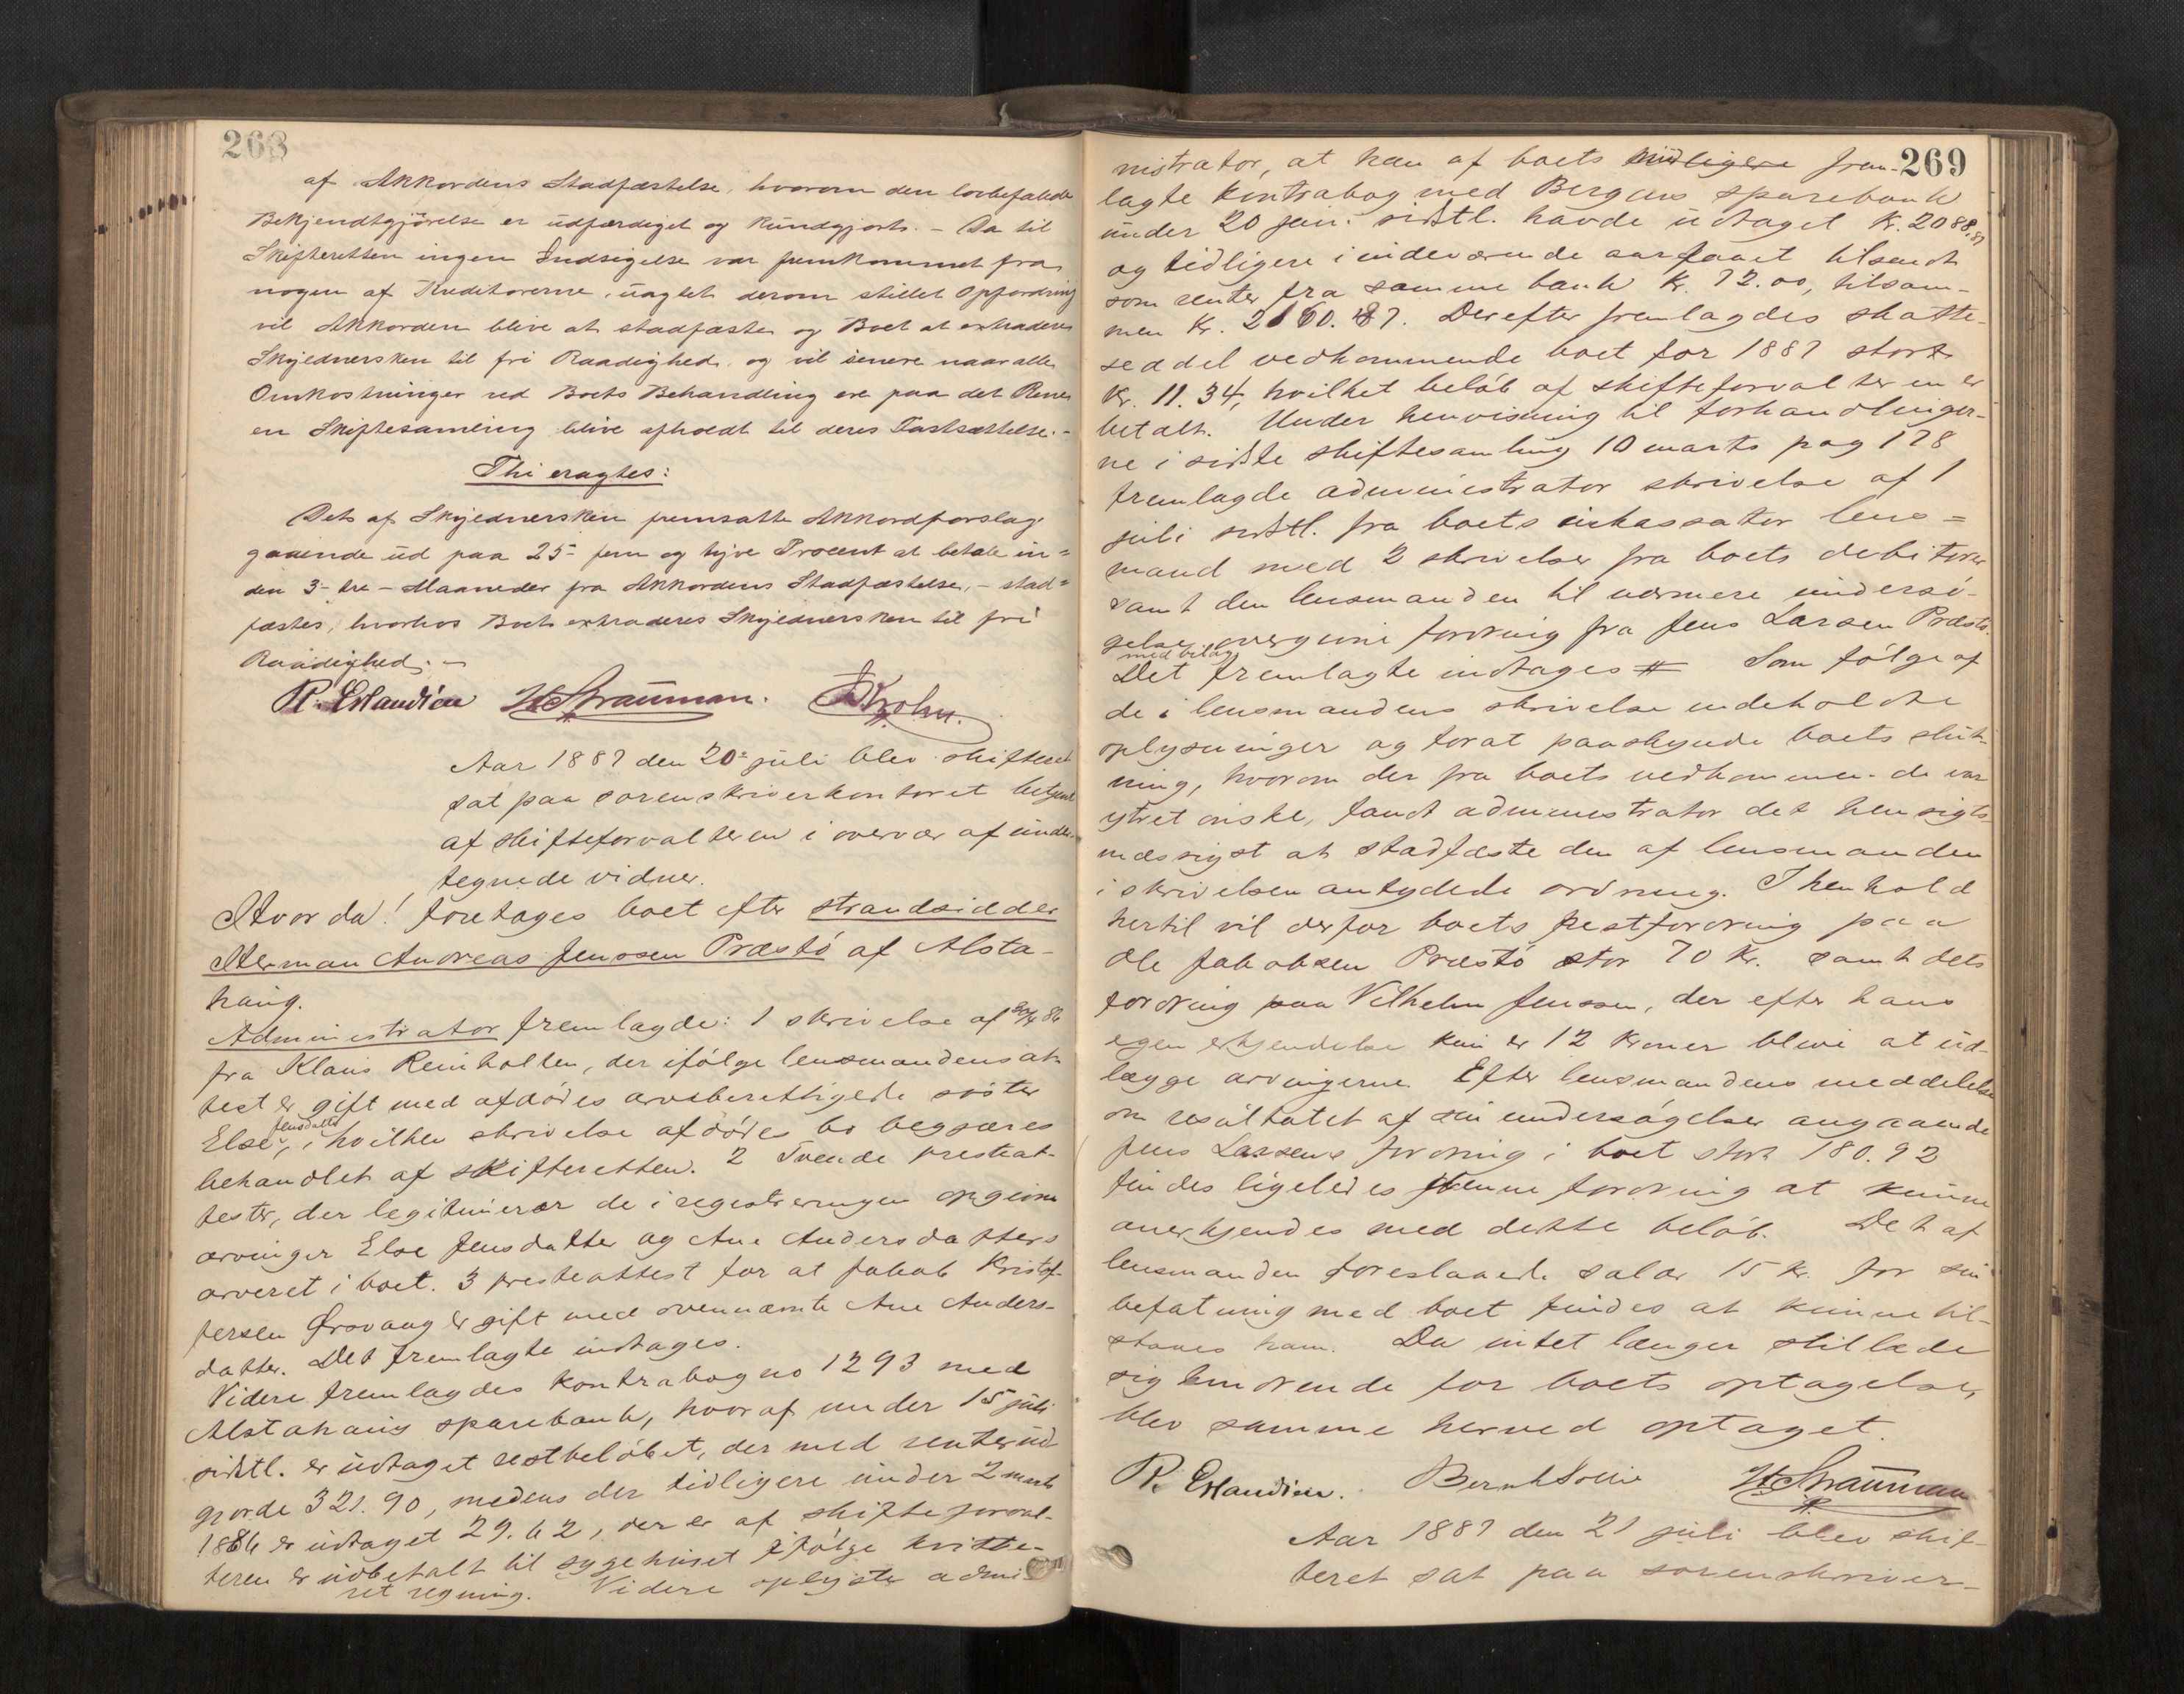 268
af Akkordens Stadfæstelse, hvorom den lovbefalede
Bekjendtgjörelse er udfærdiget og kundgjort. - Da til
Skifteretten ingen Indsigelse var fremkommet fra
nogen af Kreditorerne, uagtet derom stillet Opfordring
vil Akkorden blive at stadfæste og Boet at extradere
Skyldnersken til fri Raadighed, og vil senere naar alle
Omkostninger ved Boets Behandling ere paa det Rene
en Skiftesamling blive afholdt til deres Fastsættelse. -
Thi eragtes:
Det af Skyldnersken fremsatte Akkordforslag
gaaende ud paa 25 - fem og tyve Procent at betale in=
den 3 - tre - Maaneder fra Akkordens Stadfæstelse, - stad=
fæstes, hvorhos Boet extraderes Skyldnersken til fri
Raadighed. -
R. Erlandsen H. Straumann. Krohn.
Aar 1887 den 20 juli blev skifteret
sat paa sorenskriverkontoret betjent
af skifteforvalteren i overvær af under-
tegnede vidner.
Hvorda! foretages boet efter strandsidder
Herman Andreas Jenssen Præstö af Alsta-
haug.
Administrator fremlagde: 1 skrivelse af 86
fra Klaus Reinholtsen, der ifölge lensmandens at-
test er gift med afdödes arveberettigede söster
Else Jensdatter, i hvilken skrivelse afdödes bo begjæres
behandlet af skifteretten. 2 Tvende presteat-
tester, der legitimerer de i registreringen opgivne
arvinger Else Jensdatter og Ane Andersdatters
arveret i boet. 3 presteattest for at Jakob Kristof-
fersen er gift med ovennævnte Ane Anders-
datter. Det fremlagte indtages.
Videre fremlagdes kontrabog no 1293 med
Alstahaug sparebank, hvoraf under 15 juli
sidstl. er udtaget restbelöbet, der med renter ud
gjorde 321.90, medens der tidligere under 2 marts
1886 er udtaget 29.62, der er af skifteforval-
teren er udbetalt til sygehuset ifölge kvitte-
ret regning. Videre oplyste admi-
269
nistrator, at han af boets tidligere frem-
lagte kontrabog med Bergens sparebank
under 20 jan. sidstl. havde udtaget Kr. 2088,87
og tidligere i indeværende aar faaet tilsendt
som renter fra samme bank Kr. 72.00, tilsam-
men Kr. 2160.87. Derefter fremlagdes skatte-
seddel vedkommende boet for 1887 stor
Kr. 11.34, hvilket belöb af skifteforvalteren er
betalt. Under henvisning til forhandlinger-
ne i sidste skiftesamling 10 marts pag 178
fremlagde administrator skrivelse af 1
juli sidstl. fra boets inkassator lens=
mand med 2 skrivelser fra boets debitorer
samt den lensmanden til nærmere undersö-
gelse overgivne fordring fra Jens Larsen Præstö.
med bilag
Det fremlagte indtages # Som fölge af
de i lensmandens skrivelse indeholdte
oplysninger og for at paaskynde boets slut-
ning, hvorom der fra boets vedkommende var
ytret önske, fandt administrator det hensigts-
mæssigst at stadfæste den af lensmanden
i skrivelsen antydede ordning. I henhold
hertil vil derfor boets restfordring paa
Ole Jakobsen Præstö stor 70 Kr. samt dets
fordring paa Vilhelm Jenssen, der efter hans
egen erkjendelse kun er 12 Kroner blive at ud-
lægge arvingerne. Efter lensmandens meddelelse
om resultatet af sin undersögelser angaaende
Jens Larsens fordring i boet stor 180.92
findes ligeledes denne fordring at kunne
anerkjendes med dette belöb. Det af
lensmanden foreslaaede salær 15 Kr. for sin
befatning med boet findes at kunne til-
staaes ham. Da intet længer stillede
sig hindrende for boets optagelse,
blev samme herved optaget.
R. Erlandsen. H. Straumann
Aar 1887 den 21 juli blev skif-
teret sat paa sorenskriver-